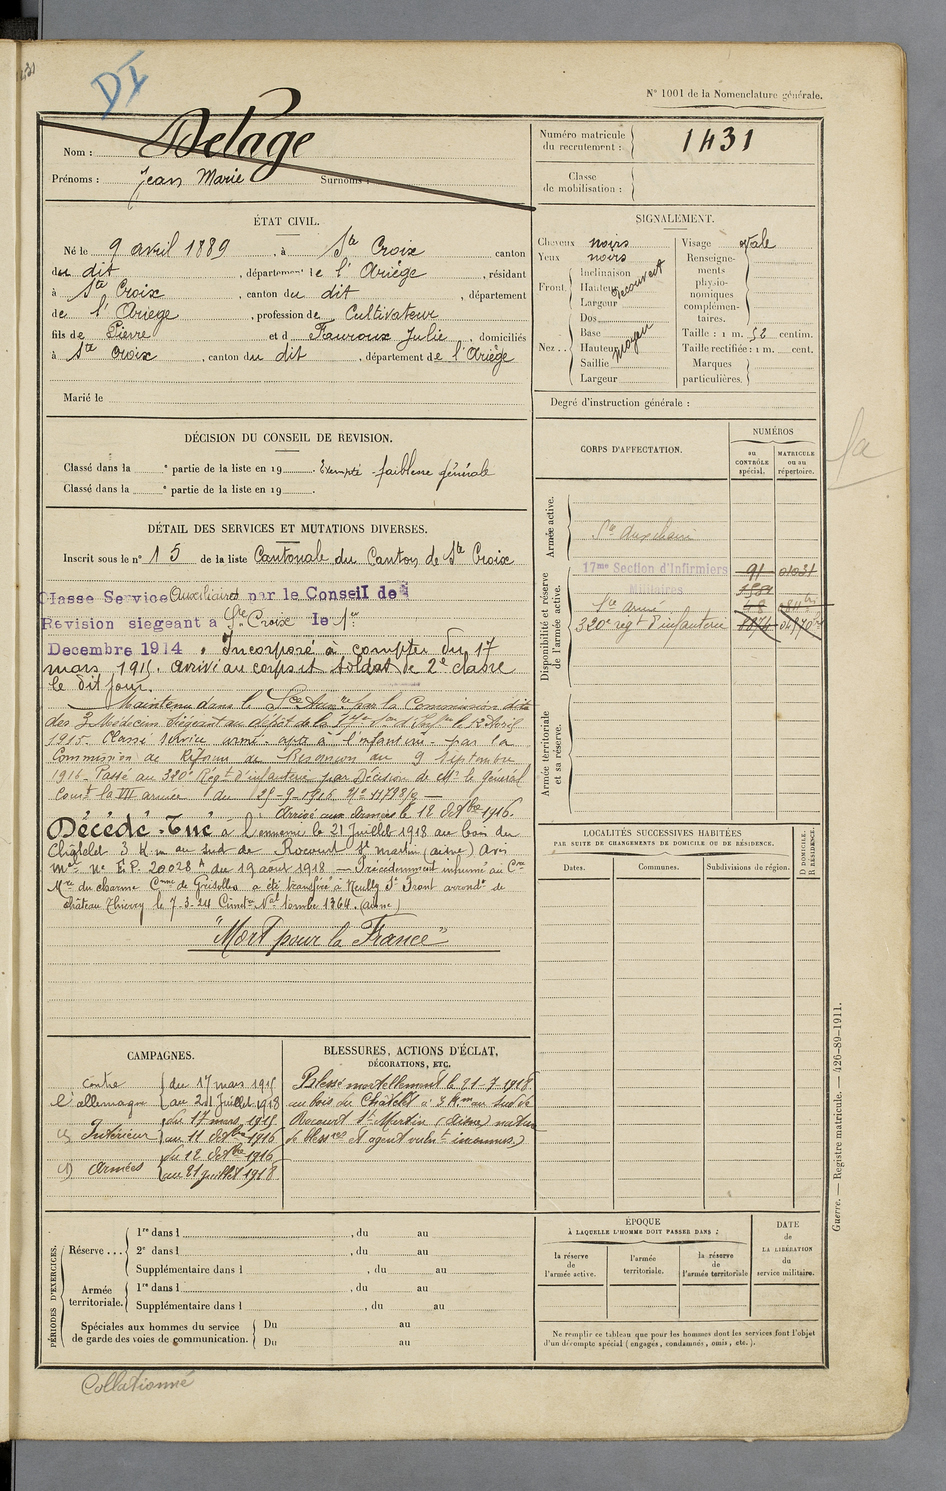 DI
N° 1001 de la Nomenclature générale.
Nom : Delage
Prénoms : Jean Marie Surnoms :
Numéro matricule du recrutement : 1431
Classe de mobilisation :
ÉTAT CIVIL.
Né le 9 avril 1889, à Ste Croix canton
du dit, département de l'Ariège, résidant
à Ste Croix, canton du dit, département
de l'Ariège, profession de Cultivateur
fils de Pierre et d Fauroux Julie domiciliés
à Ste Croix, canton du dit, département de l'Ariège
Marié le
SIGNALEMENT.
Cheveux noirs
Yeux noirs
Front. Inclinaison
Hauteur découvert
Largeur
Nez.. Dos
Base
Hauteur moyen
Saillie
Largeur
Visage ovale
Renseignements physionomiques complémentaires.
Taille : 1 m. 52 centim.
Taille rectifiée : 1 m. cent.
Marques particulières.
Degré d'instruction générale :
DÉCISION DU CONSEIL DE REVISION.
Classé dans la e partie de la liste en 19 Exempté faiblesse générale
Classé dans la e partie de la liste en 19
DÉTAIL DES SERVICES ET MUTATIONS DIVERSES.
Inscrit sous le n° 15 de la liste Cantonale du Canton de Ste Croix
Classe Service Auxiliaires par le Conseil de
Revision siegeant a Ste Croix le 1er
Decembre 1914. Incorporé à compter du 17
mars 1915. Arrivé au corps et soldat de 2e classe
le dit jour.
Maintenu dans le Sce Auxre par la Commission dite
des 3 Médecins siégeant au dépôt de la 17e le 12 Avril
1915. Classé service armé apte à l'infanterie par la
Commission de Réforme de Besançon du 9 septembre
1916. Passé au 320e Régt d'infanterie par Décision de Mr le Général
Comt la VII armée du 25-9-1916 N° 11798/2
Arrivé aux Armées le 12 Octbre 1916.
Décédé - Tué à l'ennemi le 21 Juillet 1918 au bois du
Châtelet 3 Km au sud de Rocourt St Martin (aisne) Avis
mel N° E.P. 20028 A du 19 août 1918 — Précédemment inhumé au Cre
Mre du charme Cmne de Grisolles a été transféré à Neuilly St Front arrondt de
château Thierry le 7-3-24 Cimetre Nal tombe 1364. (aisne)
"Mort pour la France"
CORPS D'AFFECTATION.
NUMÉROS
au CONTRÔLE spécial.
MATRICULE ou au répertoire.
Armée active.
Disponibilité et réserve de l'armée active.
Armée territoriale et sa réserve.
Sce Auxiliaire
17me Section d'Infirmiers Militaires 91 01031
Sce armé
320e regt d'infanterie
LOCALITÉS SUCCESSIVES HABITÉES
PAR SUITE DE CHANGEMENTS DE DOMICILE OU DE RÉSIDENCE.
Dates. Communes. Subdivisions de région.
D DOMICILE.
R RÉSIDENCE.
CAMPAGNES.
Contre l'allemagne du 17 mars 1915
au 21 Juillet 1918
Intérieur du 17 mars 1915
au 11 Octbre 1916
Armées du 12 Octbre 1916
au 21 juillet 1918
BLESSURES, ACTIONS D'ÉCLAT,
DÉCORATIONS, ETC.
Blessé mortellement le 21-7-1918
au bois du Châtelet à 3 Km au sud de
Rocourt St Martin (Aisne) nature
de bless res et agent vulnt inconnus.)
PÉRIODES D'EXERCICES.
Réserve... 1re dans l , du au
2e dans l , du au
Supplémentaire dans l , du au
Armée territoriale. 1re dans l , du au
Supplémentaire dans l , du au
Spéciales aux hommes du service de garde des voies de communication. Du au
Du au
ÉPOQUE
À LAQUELLE L'HOMME DOIT PASSER DANS :
la réserve de l'armée active.
l'armée territoriale.
la réserve de l'armée territoriale
DATE de LA LIBÉRATION du service militaire.
Ne remplir ce tableau que pour les hommes dont les services font l'objet
d'un décompte spécial (engagés, condamnés, omis, etc.).
Guerre. — Registre matricule. — 426-89-1911.
Collationné